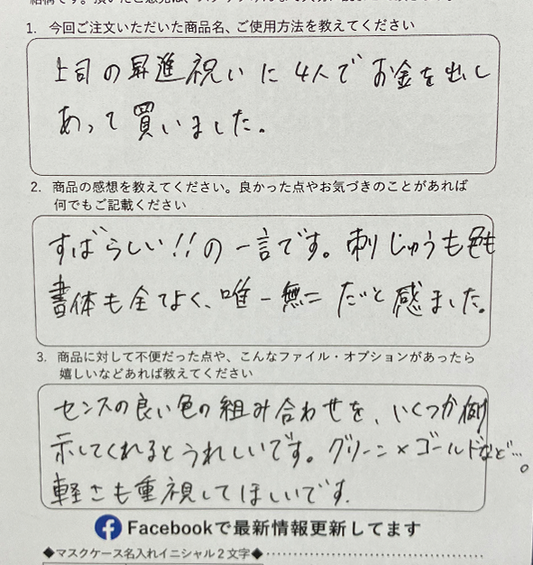 1. 今回ご注文いただいた商品名、ご使用方法を教えてください
上司の昇進祝いに4人でお金を出し
あって買いました。
2. 商品の感想を教えてください。良かった点やお気づきのことがあれば
何でもご記載ください
すばらしい!!の一言です。刺しゅうも色も
書体も全てよく、唯一無二だと感ました。
3. 商品に対して不便だった点や、こんなファイル・オプションがあったら
嬉しいなどあれば教えてください
センスの良い色の組み合わせを、いくつか例
示してくれるとうれしいです。グリーン×ゴールドなど…。
軽さも重視してほしいです.
Facebookで最新情報更新してます
◆マスクケース名入れイニシャル2文字◆